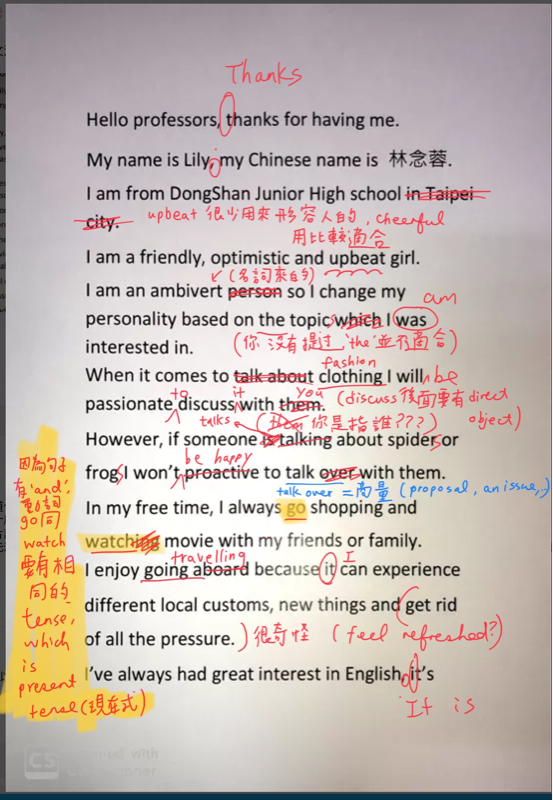 Thanks
Hello professors, thanks for having me.
My name is Lily, my Chinese name is 林念蓉.
I am from DongShan Junior High school in Taipei
city. upbeat 很少用來形容人的, cheerful
用比較適合
I am a friendly, optimistic and upbeat girl.
(名詞來的)
I am an ambivert person so I change my
am
personality based on the topic which I was
interested in. (你沒有提過 'the' 並不適合)
fashion
When it comes to talk about clothing I will be
to it you
passionate discuss with them. (discuss 後面要有 direct
object)
talks 你是指誰???)
However, if someone is talking about spiders or
be happy
frogs I won't proactive to talk over with them.
talk over = 商量 (proposal, an issue,)
In my free time, I always go shopping and
watching movie with my friends or family.
travelling I
I enjoy going aboard because it can experience
different local customs, new things and get rid
of all the pressure.) 很奇怪 (feel refreshed?)
I've always had great interest in English, it's
It is
因為句子
有'and',
動詞
go同
watch
要有相
同的
tense,
which
is
present
tense(現在式)
CS